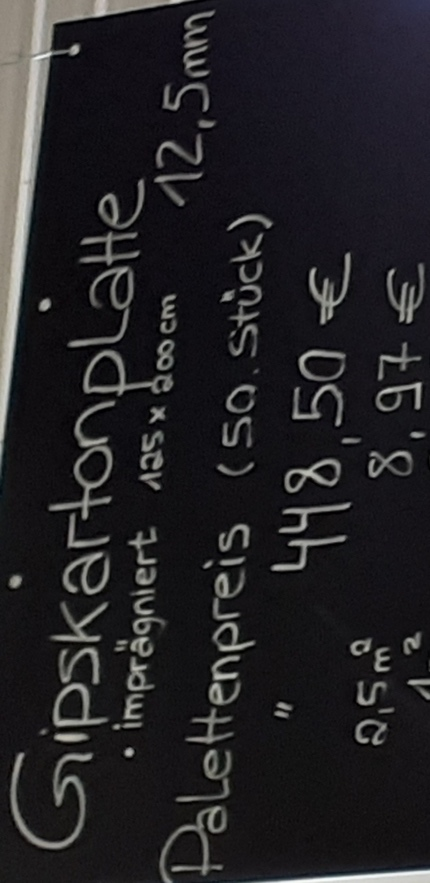 Gipskartonplatte
• imprägniert 125 x 200cm 12,5mm
Palettenpreis (50. Stück)
" 448,50 €
2,5m² 8,97 €